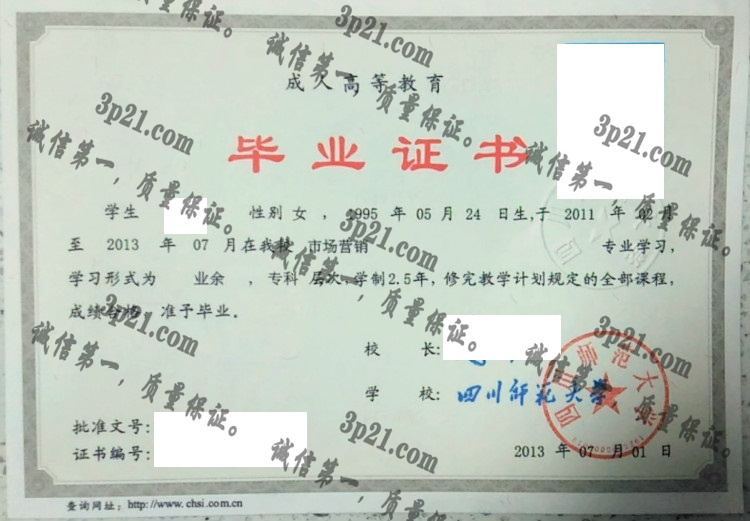 3p21.com
诚信第一，质量保证。
成人高等教育
毕业证书
学生 性别 女 ，1995 年 05 月 24 日生,于 2011 年 02 月
至 2013 年 07 月在我校 市场营销 专业学习,
学习形式为 业余 ，专科 层次,学制2.5年，修完教学计划规定的全部课程,
成绩合格，准予毕业。
校 长:
学 校: 四川师范大学
批准文号:
证书编号:
2013 年 07 月 01 日
查询网址：http://www.chsi.com.cn